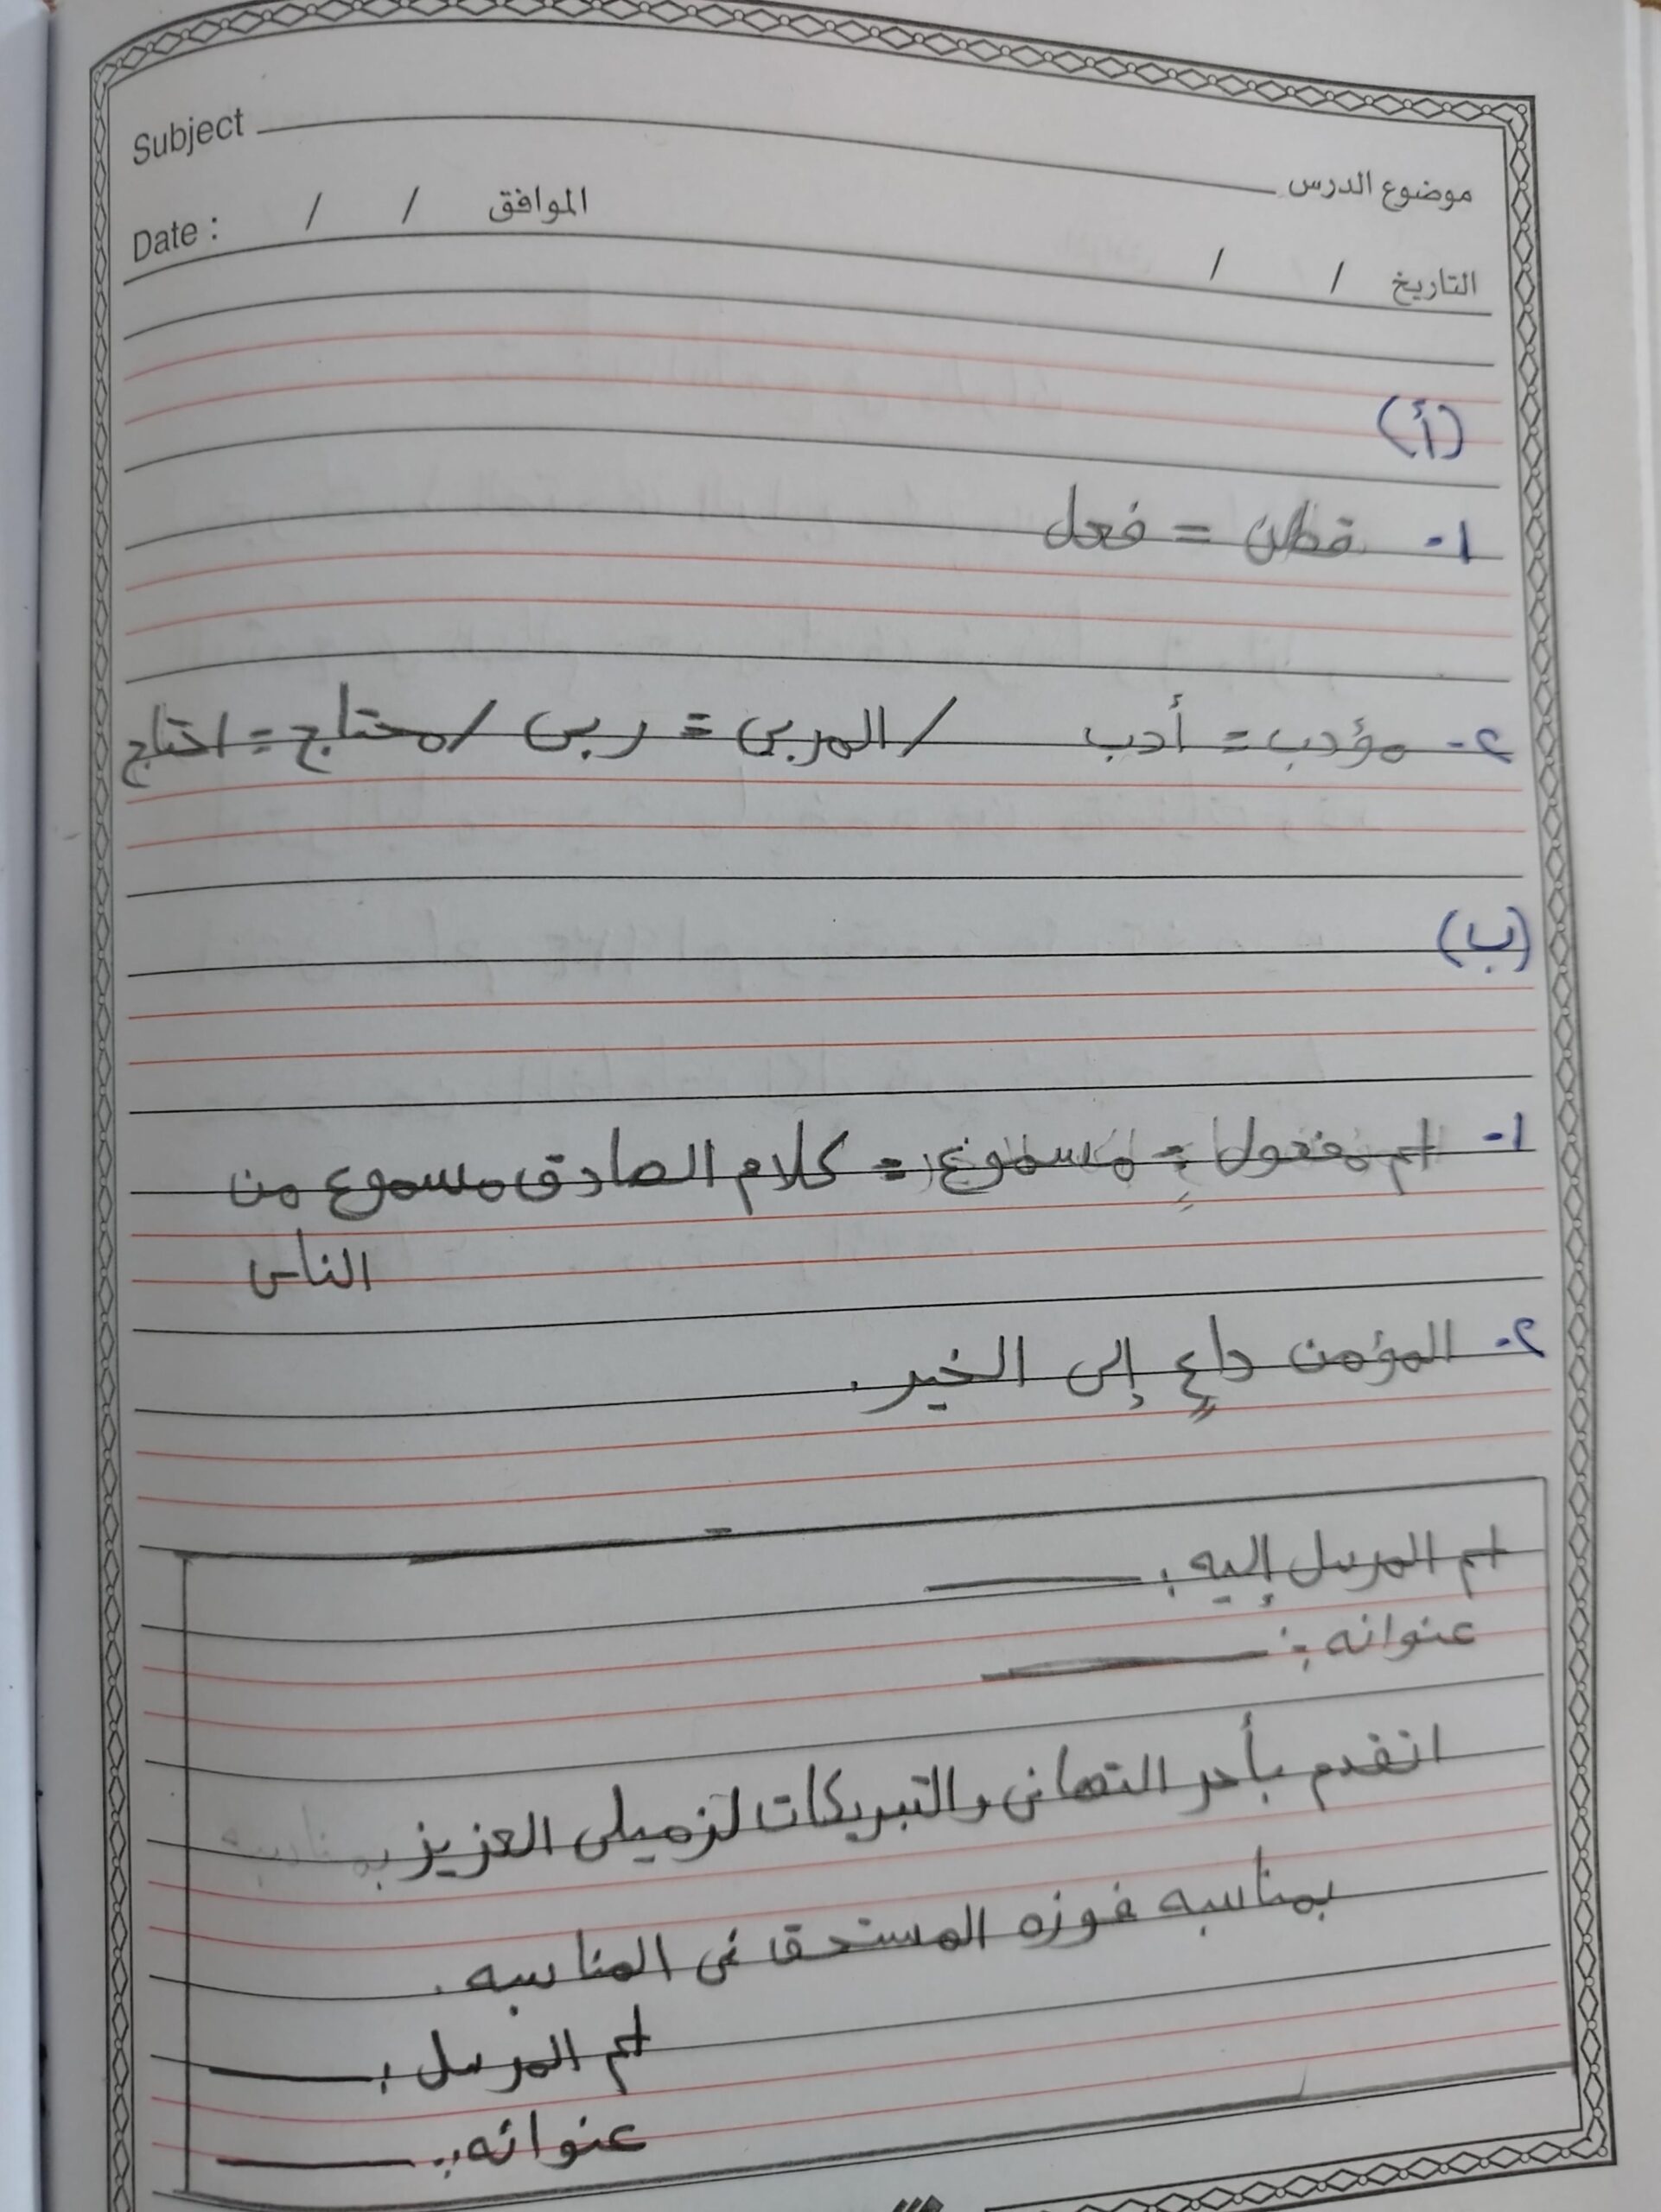 Subject موضوع الدرس
Date : / / الموافق / / التاريخ
(أ)
١- قطن = فعل
٢- مؤدب = أدب / المربى = ربى / محتاج = احتاج
(ب)
١- اسم مفعول = مسموع = كلام الصادق مسموع من
الناس
٢- المؤمن داعٍ إلى الخير.
اسم المرسل إليه :
عنوانه :
اتقدم بأحر التهانى والتبريكات لزميلى العزيز
بمناسبه فوزه المستحق فى المناسبه .
اسم المرسل :
عنوانه :